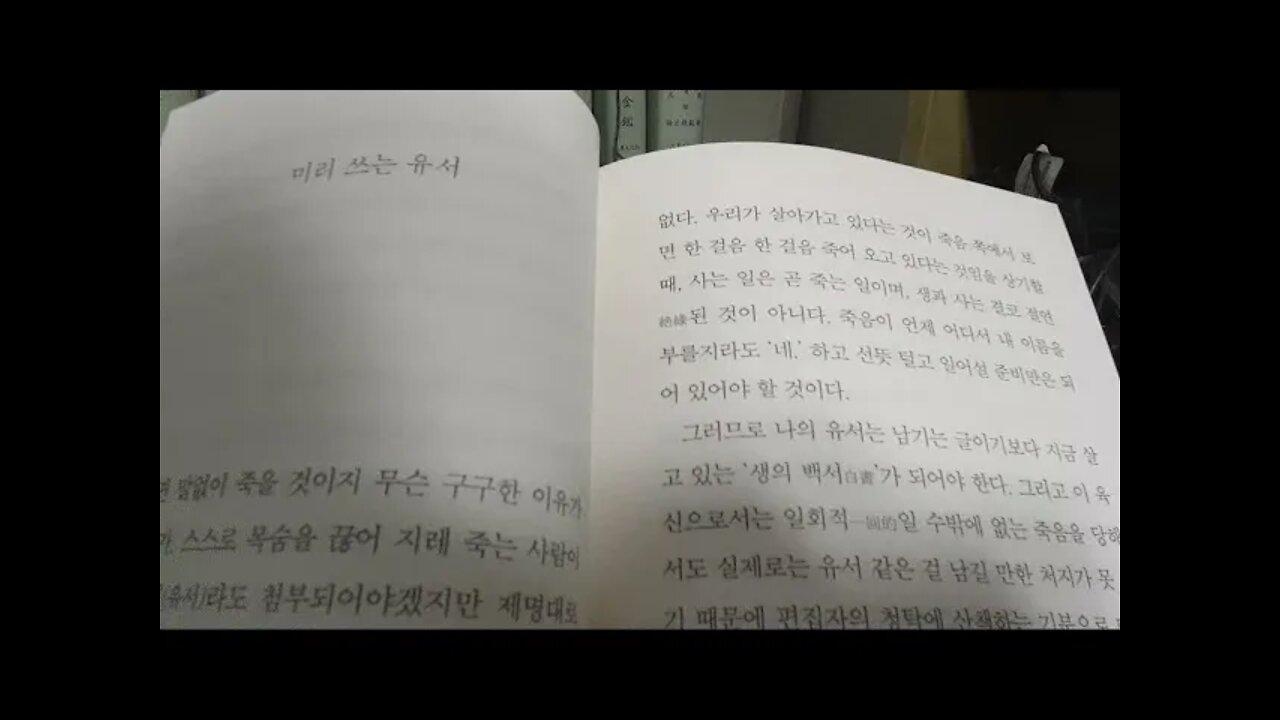 미리 쓰는 유서
말없이 죽을 것이지 무슨 구구한 이유가
스스로 목숨을 끊어 지레 죽는 사람이
(유서)라도 첨부되어야겠지만 제명대로
없다. 우리가 살아가고 있다는 것이 죽음 쪽에서 보
면 한 걸음 한 걸음 죽어 오고 있다는 것임을 상기할
때, 사는 일은 곧 죽는 일이며, 생과 사는 결코 절연
絶緣된 것이 아니다. 죽음이 언제 어디서 내 이름을
부를지라도 '네.' 하고 선뜻 털고 일어설 준비만은 되
어 있어야 할 것이다.
그러므로 나의 유서는 남기는 글이기보다 지금 살
고 있는 '생의 백서白書'가 되어야 한다. 그리고 이 육
신으로서는 일회적一回的일 수밖에 없는 죽음을 당해
서도 실제로는 유서 같은 걸 남길 만한 처지가 못
기 때문에 편집자의 청탁에 산책하는 기분으로